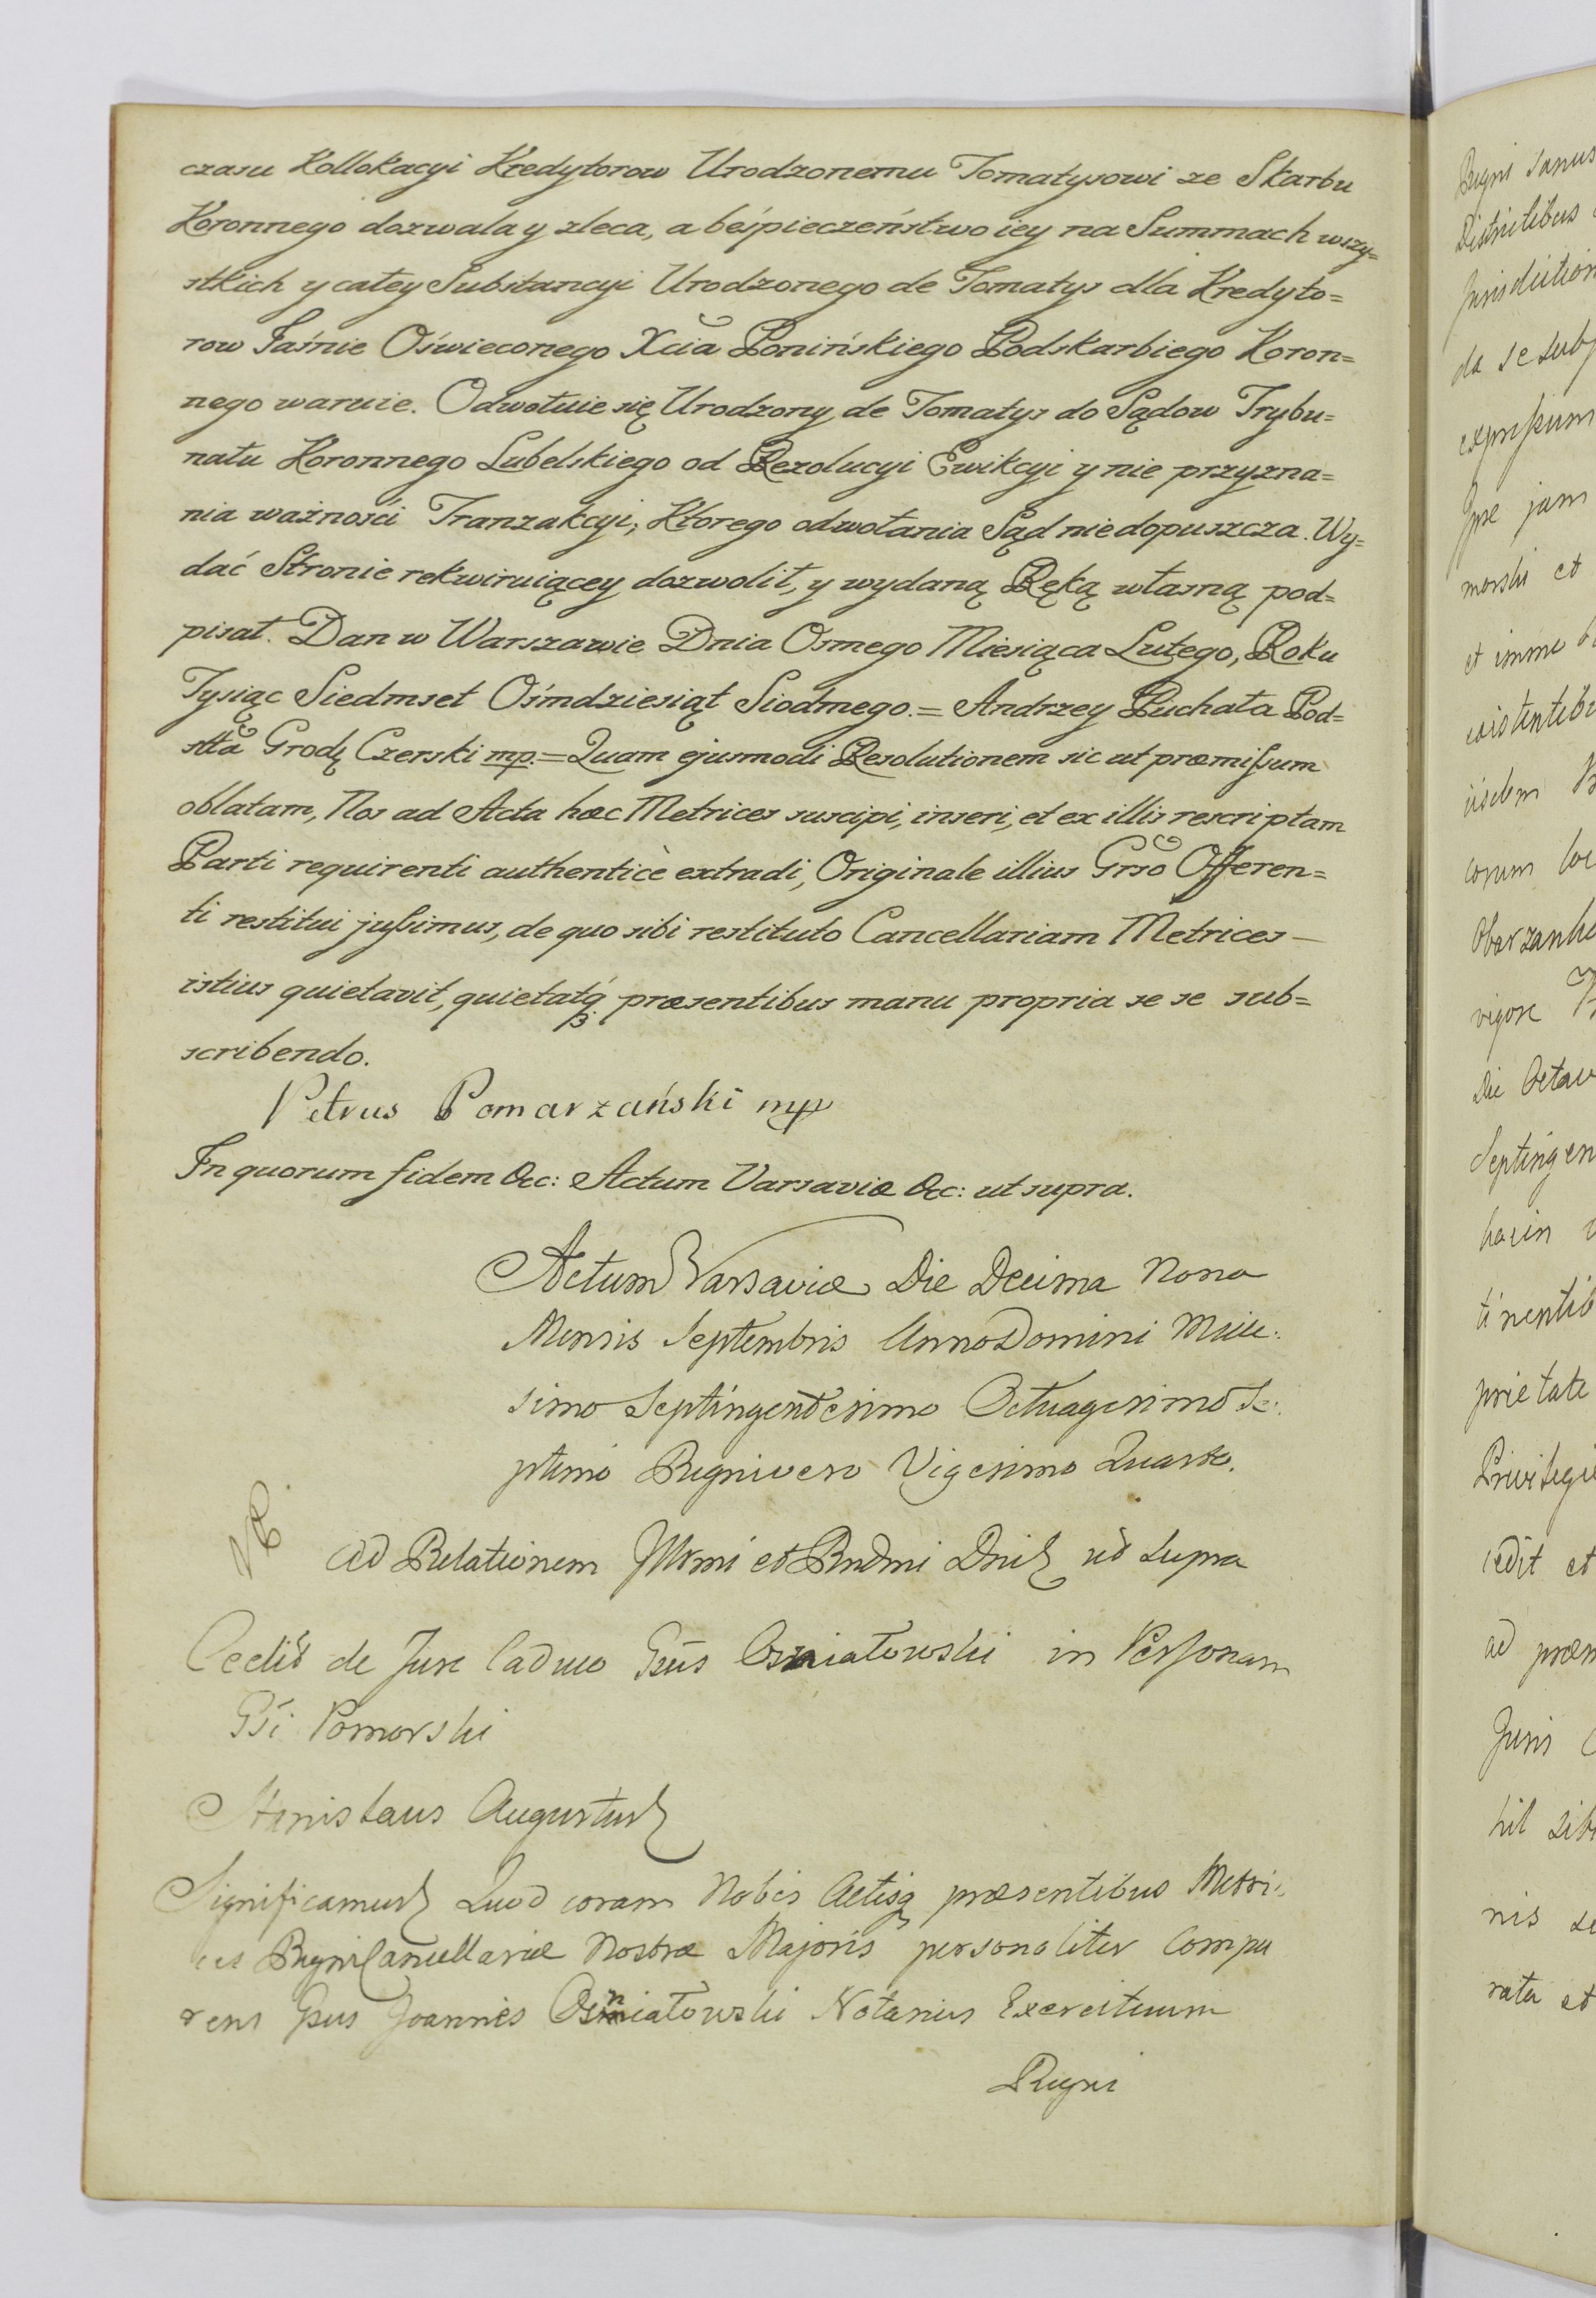 czasu Kollokacyi Kredytorow Urodzonemu Tomatysowi ze Skarbu
Koronnego dozwala y zleca, a beśpieczeństwo iey na Summach wszy=
stkich y całey Substancyi Urodzonego de Tomatys dla Kredyto=
row Jaśnie Oświeconego Xcia Ponińskiego Podskarbiego Koron=
nego waruie. Odwołuie się Urodzony de Tomatys do Sądow Trybu=
nału Koronnego Lubelskiego od Rezolucyi Ewikcyi y nie przyzna=
nia ważności Tranzakcyi, Ktorego odwołania Sąd nie dopuszcza. Wy=
dać Stronie rekwiruiącey dozwolił, y wydaną Ręką własną pod=
pisał. Dan w Warszawie Dnia Osmego Miesiąca Lutego, Roku
Tysiąc Siedmset Ośmdziesiąt Siodmego. = Andrzey Puchała Pod=
stta Grodz Czerski mp. = Quam ejusmodi Resolutionem sic ut præmissum
oblatam, Nos ad Acta hæc Metrices suscipi, inseri, et ex illis rescriptam
Parti requirenti authenticè extradi, Originale illius Grso Offeren=
ti restitui jussimus, de quo sibi restituto Cancellariam Metrices
istius quietavit, quietatq; præsentibus manu propria se se sub=
scribendo.
Petrus Pomarzański mp
In quorum fidem &c: Actum Varsaviæ &c: ut supra.
Actum Varsaviæ Die Decima Nona
Mensis Septembris Anno Domini Mille:
simo Septingentesimo Octuagesimo Se:
ptimo Regni vero Vigesimo Quarto.
Ad Relationem Illmi et Rndmi Dni ut supra
Cedit de Jure Caduco Gsus Osniatowski in Personam
Gsi Pomorski
Stanislaus Augustus
Significamus Quod coram Nobis Actisq præsentibus Metri:
ces Regni Cancellariæ Nostræ Majoris personaliter Compa
rens Gsus Joannes Osniatowski Notarius Exercituum
Regni
Regni
Districtibus
da se sub
Ipse jam
et
vigore
Die Octav
Septingen
tinentib
prietate
Privilegi
cedit et
ad præm
Juris
nis
rata et